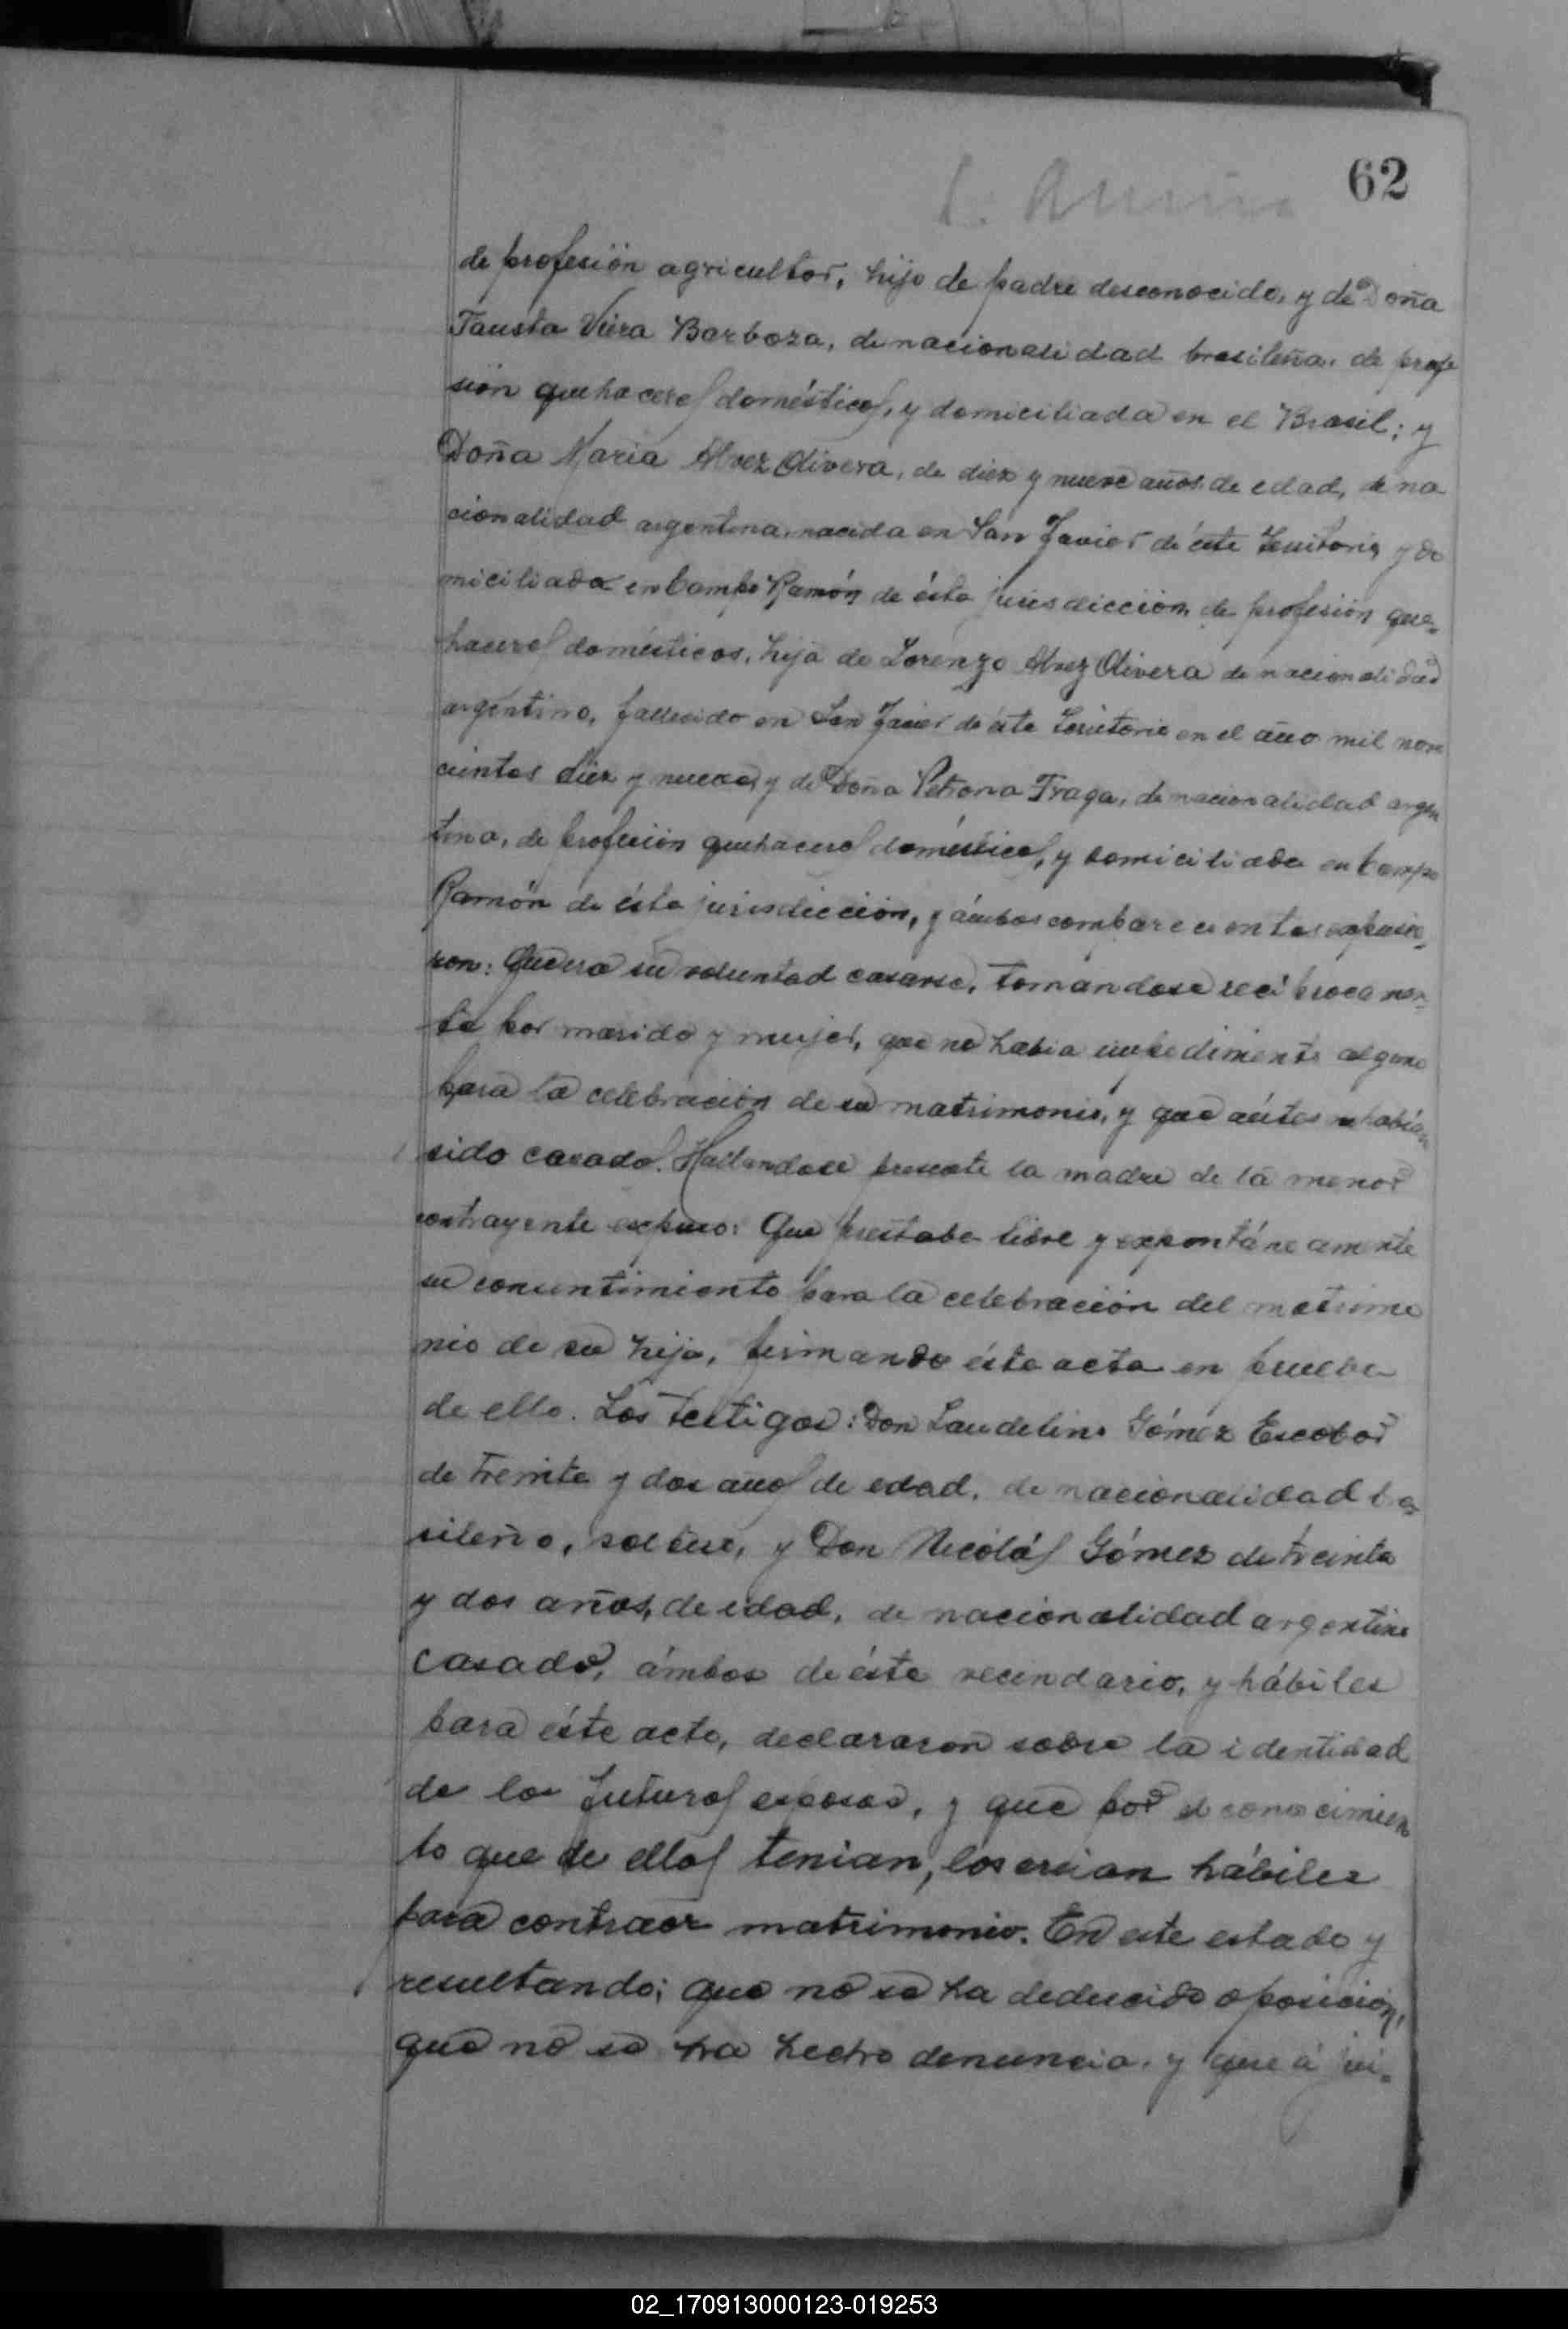 62
de profesión agricultor, hijo de padre desconocido, y de Doña
Fausta Viera Barboza, de nacionalidad brasileña, de profe
sión quehaceres domésticos, y domiciliada en el Brasil; y
Doña Maria Alvez Olivera, de diez y nueve años de edad, de na
cionalidad argentina, nacida en San Javier de éste Territorio, y do
miciliada en Campo Ramón de ésta jurisdicción, de profesión que-
haceres domésticos, hija de Lorenzo Alvez Olivera de nacionalidad
argentino, fallecido en San Javier de éste Territorio en el año mil nove
cientos diez y nueve, y de Doña Petrona Fraga, de nacionalidad argen
tina, de profesión quehaceres domésticos, y domiciliada en Campo
Ramón de ésta jurisdicción, y ámbos comparecientes expusie-
ron: Que era su voluntad casarse, tomandose recíprocamen-
te por marido y mujer, que no habia impedimento alguno
para la celebración de su matrimonio, y que ántes no habían
sido casados. Hallandose presente la madre de la menor
contrayente expuso: Que prestaba libre y expontáneamente
su consentimiento para la celebración del matrimo
nio de su hija, firmando ésta acta en prueba
de ello. Los testigos: Don Laudelino Gómez Escobar
de treinta y dos años de edad, de nacionalidad bra
sileño, soltero, y Don Nicólás Gómez de treinta
y dos años, de edad, de nacionalidad argentino
casado, ámbos de éste vecindario, y hábiles
para éste acto, declararon sobre la identidad
de los futuros esposos, y que por el conocimien
to que de ellos tenian, los creian hábiles
para contraer matrimonio. En este estado y
resultando; que no se ha deducido oposición,
que no se ha hecho denuncia, y que á jui-
02_170913000123-019253